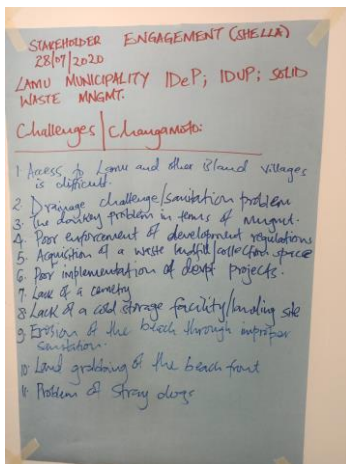 STAKEHOLDER ENGAGEMENT (SHELLA)
28/07/2020
LAMU MUNICIPALITY IDeP; IDUP; SOLID
WASTE MNGMT.
Challenges/Changamoto:
1. Access to Lamu and other island villages
is difficult.
2. Drainage challenge/sanitation problem
3. The donkey problem in terms of mngmt.
4. Poor enforcement of development regulations
5. Acquisition of a waste landfill/collection space
6. Poor implementation of devpt projects.
7. Lack of a cemetry
8. Lack of a cold storage facility/landing site
9. Erosion of the beach through improper
sanitation.
10. Land grabbing of the beach front
11. Problem of stray dogs